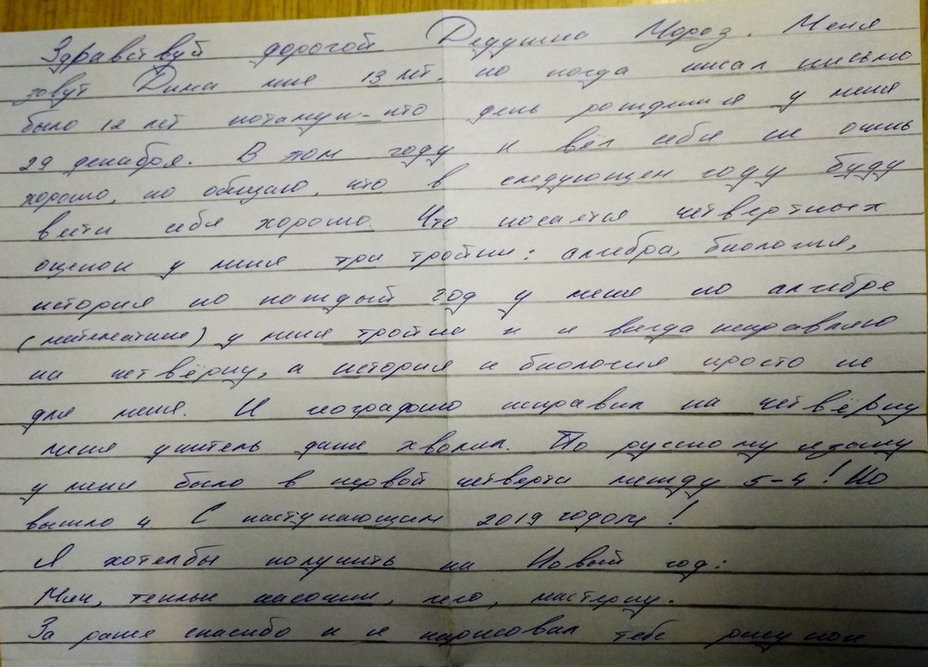 Здравствуй дорогой Дедушка Мороз. Меня
зовут Дима мне 13 лет, но когда писал письмо
было 12 лет потамук-что день рождения у меня
29 декабря. В том году я вёл себя не очень
хорошо, но обещаю, что в следующем году буду
вести себя хорошо. Что косается четвертных
оценок у меня три тройки: алгебра, биология,
история но каждый год у меня по алгебре
(математике) у меня тройка и я всегда исправляю
на четвёрку, а история и биология просто не
для меня. И географию исправил на четвёрку
меня учитель даже хвалил. По русскому языку
у меня было в первой четверти между 5-4! Но
вышло 4 С наступающим 2019 годом!
Я хотелбы получить на Новый год:
Мяч, теплые, лего,
За ранее спасибо и я нарисовал тебе рисунок